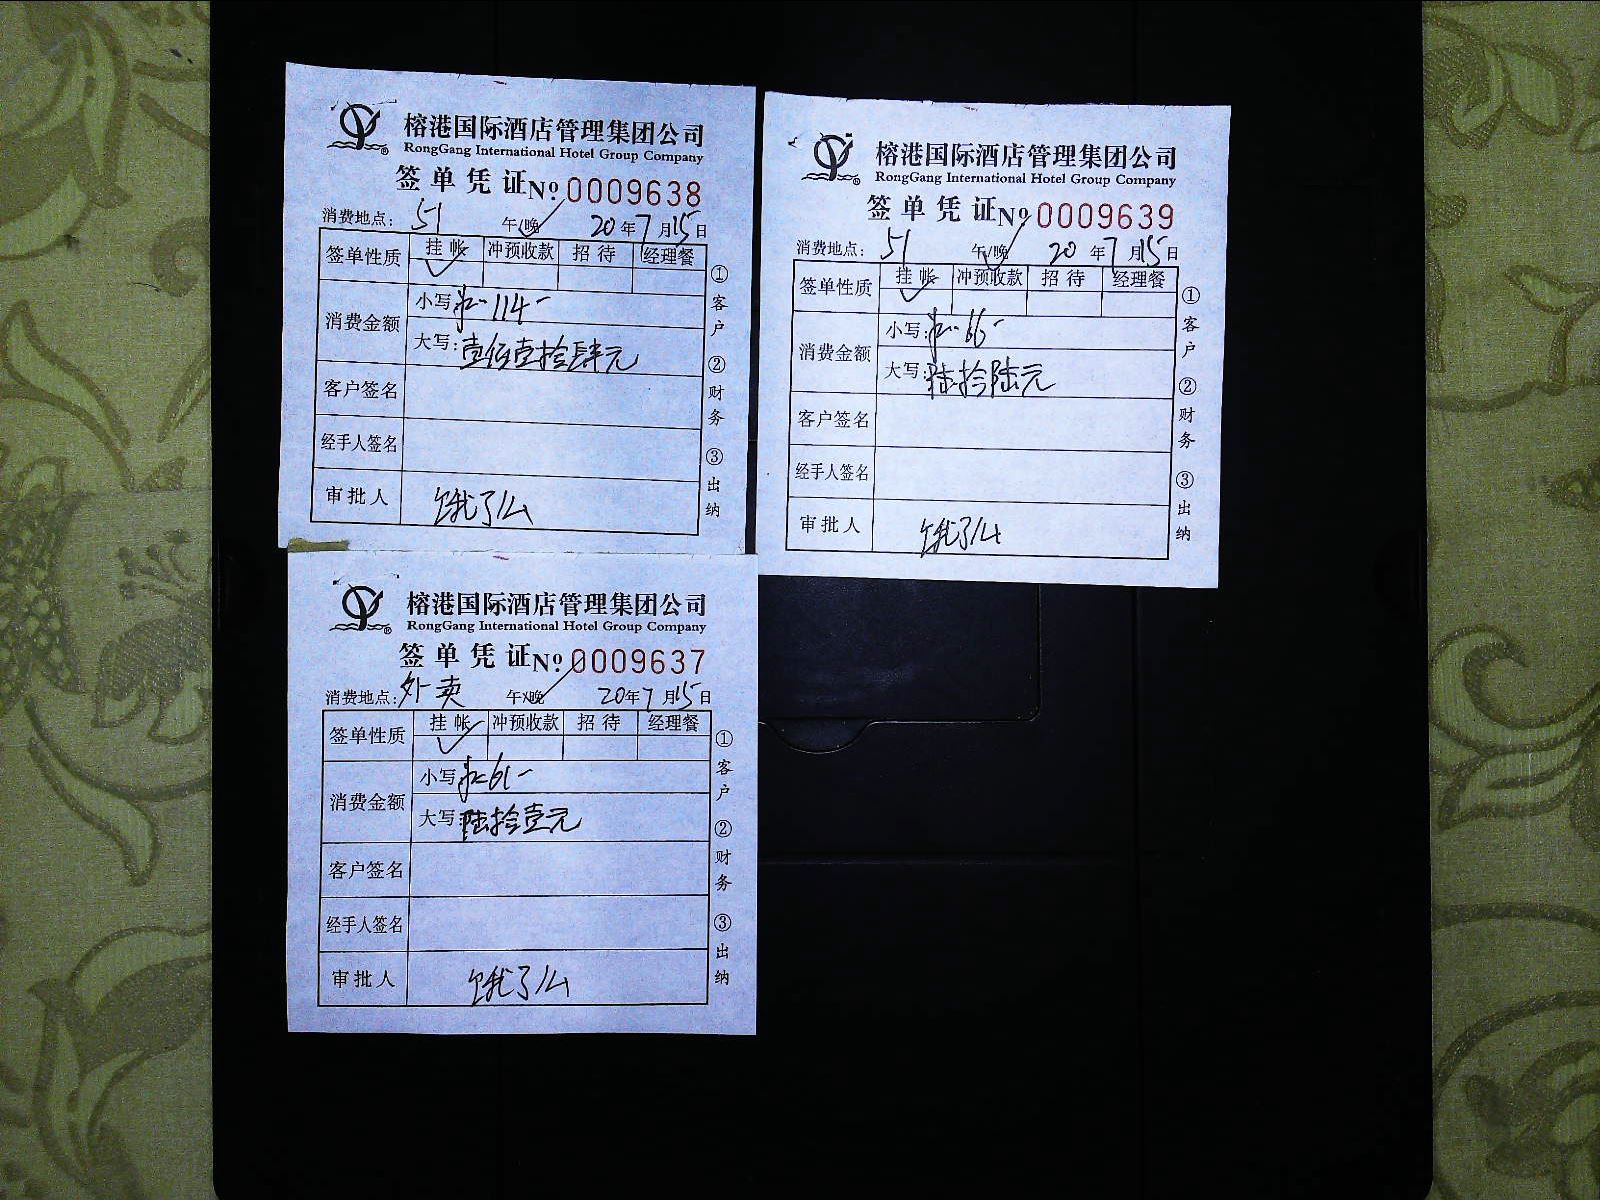 榕港国际酒店管理集团公司
RongGang International Hotel Group Company
签单凭证 № 0009638
消费地点: 51 午/晚 20年7月15日
签单性质 挂帐 冲预收款 招待 经理餐
消费金额
小写: 114-
大写: 壹佰壹拾肆元
客户签名
经手人签名
审批人 饿了么
①客户 ②财务 ③出纳
榕港国际酒店管理集团公司
RongGang International Hotel Group Company
签单凭证 № 0009639
消费地点: 51 午/晚 20年7月15日
签单性质 挂帐 冲预收款 招待 经理餐
消费金额
小写: 66-
大写: 陆拾陆元
客户签名
经手人签名
审批人 饿了么
①客户 ②财务 ③出纳
榕港国际酒店管理集团公司
RongGang International Hotel Group Company
签单凭证 № 0009637
消费地点: 外卖 午/晚 20年7月15日
签单性质 挂帐 冲预收款 招待 经理餐
消费金额
小写: 61-
大写: 陆拾壹元
客户签名
经手人签名
审批人 饿了么
①客户 ②财务 ③出纳